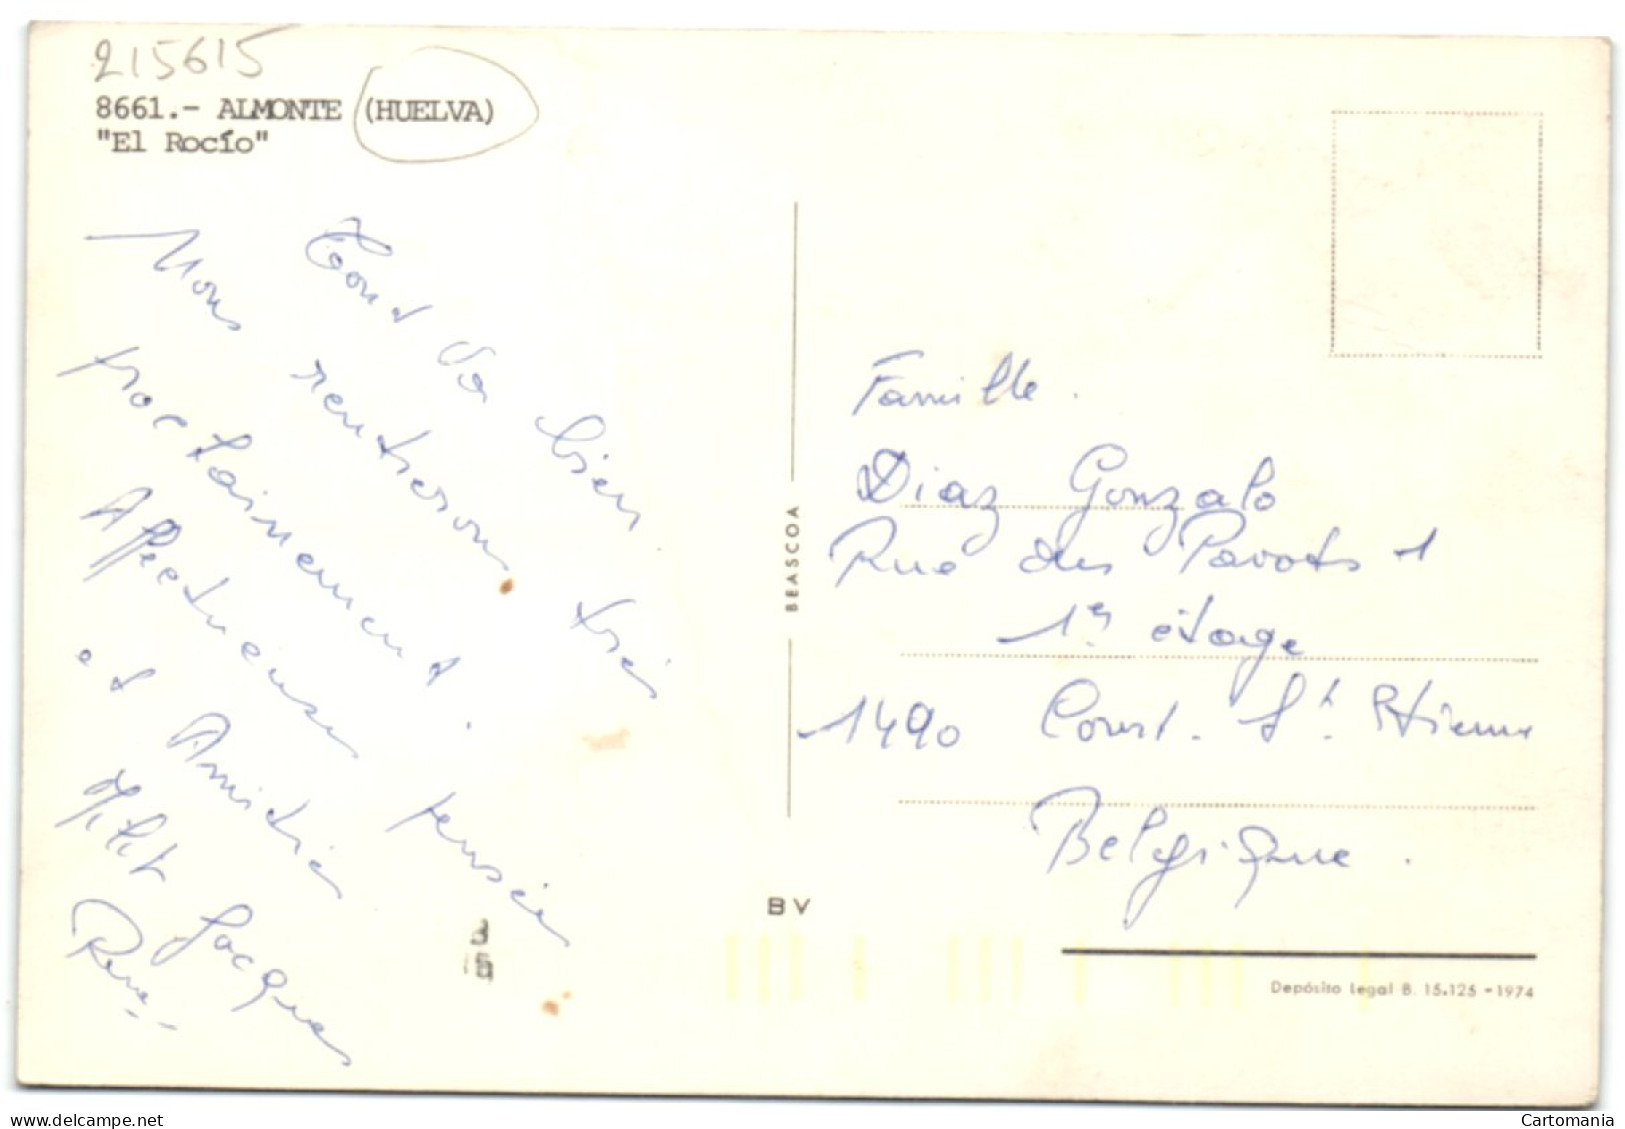 215615
8661.- ALMONTE (HUELVA)
"El Rocío"
Tout va bien.
Nous rentrerons très
prochainement.
Affectueuses pensées
et Amitiés
Jacques
René
BEASCOA
Famille.
Diaz Gonzalo
Rue des Pavots 1
1er étage
1490 Court. St. Etienne
Belgique.
BV
3
15
Depósito Legal B. 15.125 - 1974
delcampe.net
Cartomania